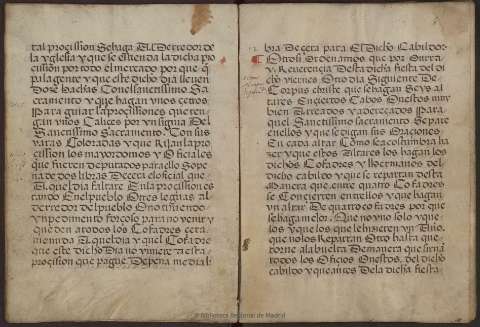 tal procission Sehaga Al Derredor de
la yglesia y que se estienda la dicha pro
cission por todo el mercado por que q
pa la gente y que este dicho dia lleuen
Doze hachas Con el sanctissimo Sa
cramento y que hagan unos cetros
Para guiar las procissiones que ten
gan unos Calices por ynsignia Del
Sanctissimo Sacramento. Con sus
varas Coloradas y que Rijan la pro
cission los mayordomos y Officiales
que fueren deputados para ello So pe
na de dos libras De cera el oficial que
Al que dia faltare En la procission es
tando En el pueblo O tres leguas al
derredor del pueblo O no tiniendo
ynpedimento forcoso para no venir y
que den a todos los Cofadres cera
menuda Aquel dia y quel Cofadre
que este dicho Dia no viniere a esta
procission que pague De pena media li
bra De cera para El Dicho Cabildo.
Otrosi Ordenamos que por Onrra
y Reuerencia Desta dicha fiesta del di
cho viernes Otro dia Siguiente De
Corpus christe que se hagan Seys al
tares En ciertos Cabos Onestos muy
bien Adereçados Para
quel Sanctissimo Sacramento Se pare
en ellos y que se digan sus Oraciones
En cada altar Como se acostumbra ha
zer y que estos Altares los hagan los
dichos Cofadres y Hermanos del
dicho cabildo y que se repartan desta
Manera que entre quatro Cofadres
se Concierten entrellos y que hagan
un altar De quatro cofadres por que
se haga mejor. Que no uno solo y que
los que los le hizieren un Año.
que no los Repartan Otro hasta que
torne a la buelta De manera que sirua
todos los Oficios Onestos. del dicho
cabildo y que antes De la dicha fiesta
© Biblioteca Regional de Madrid